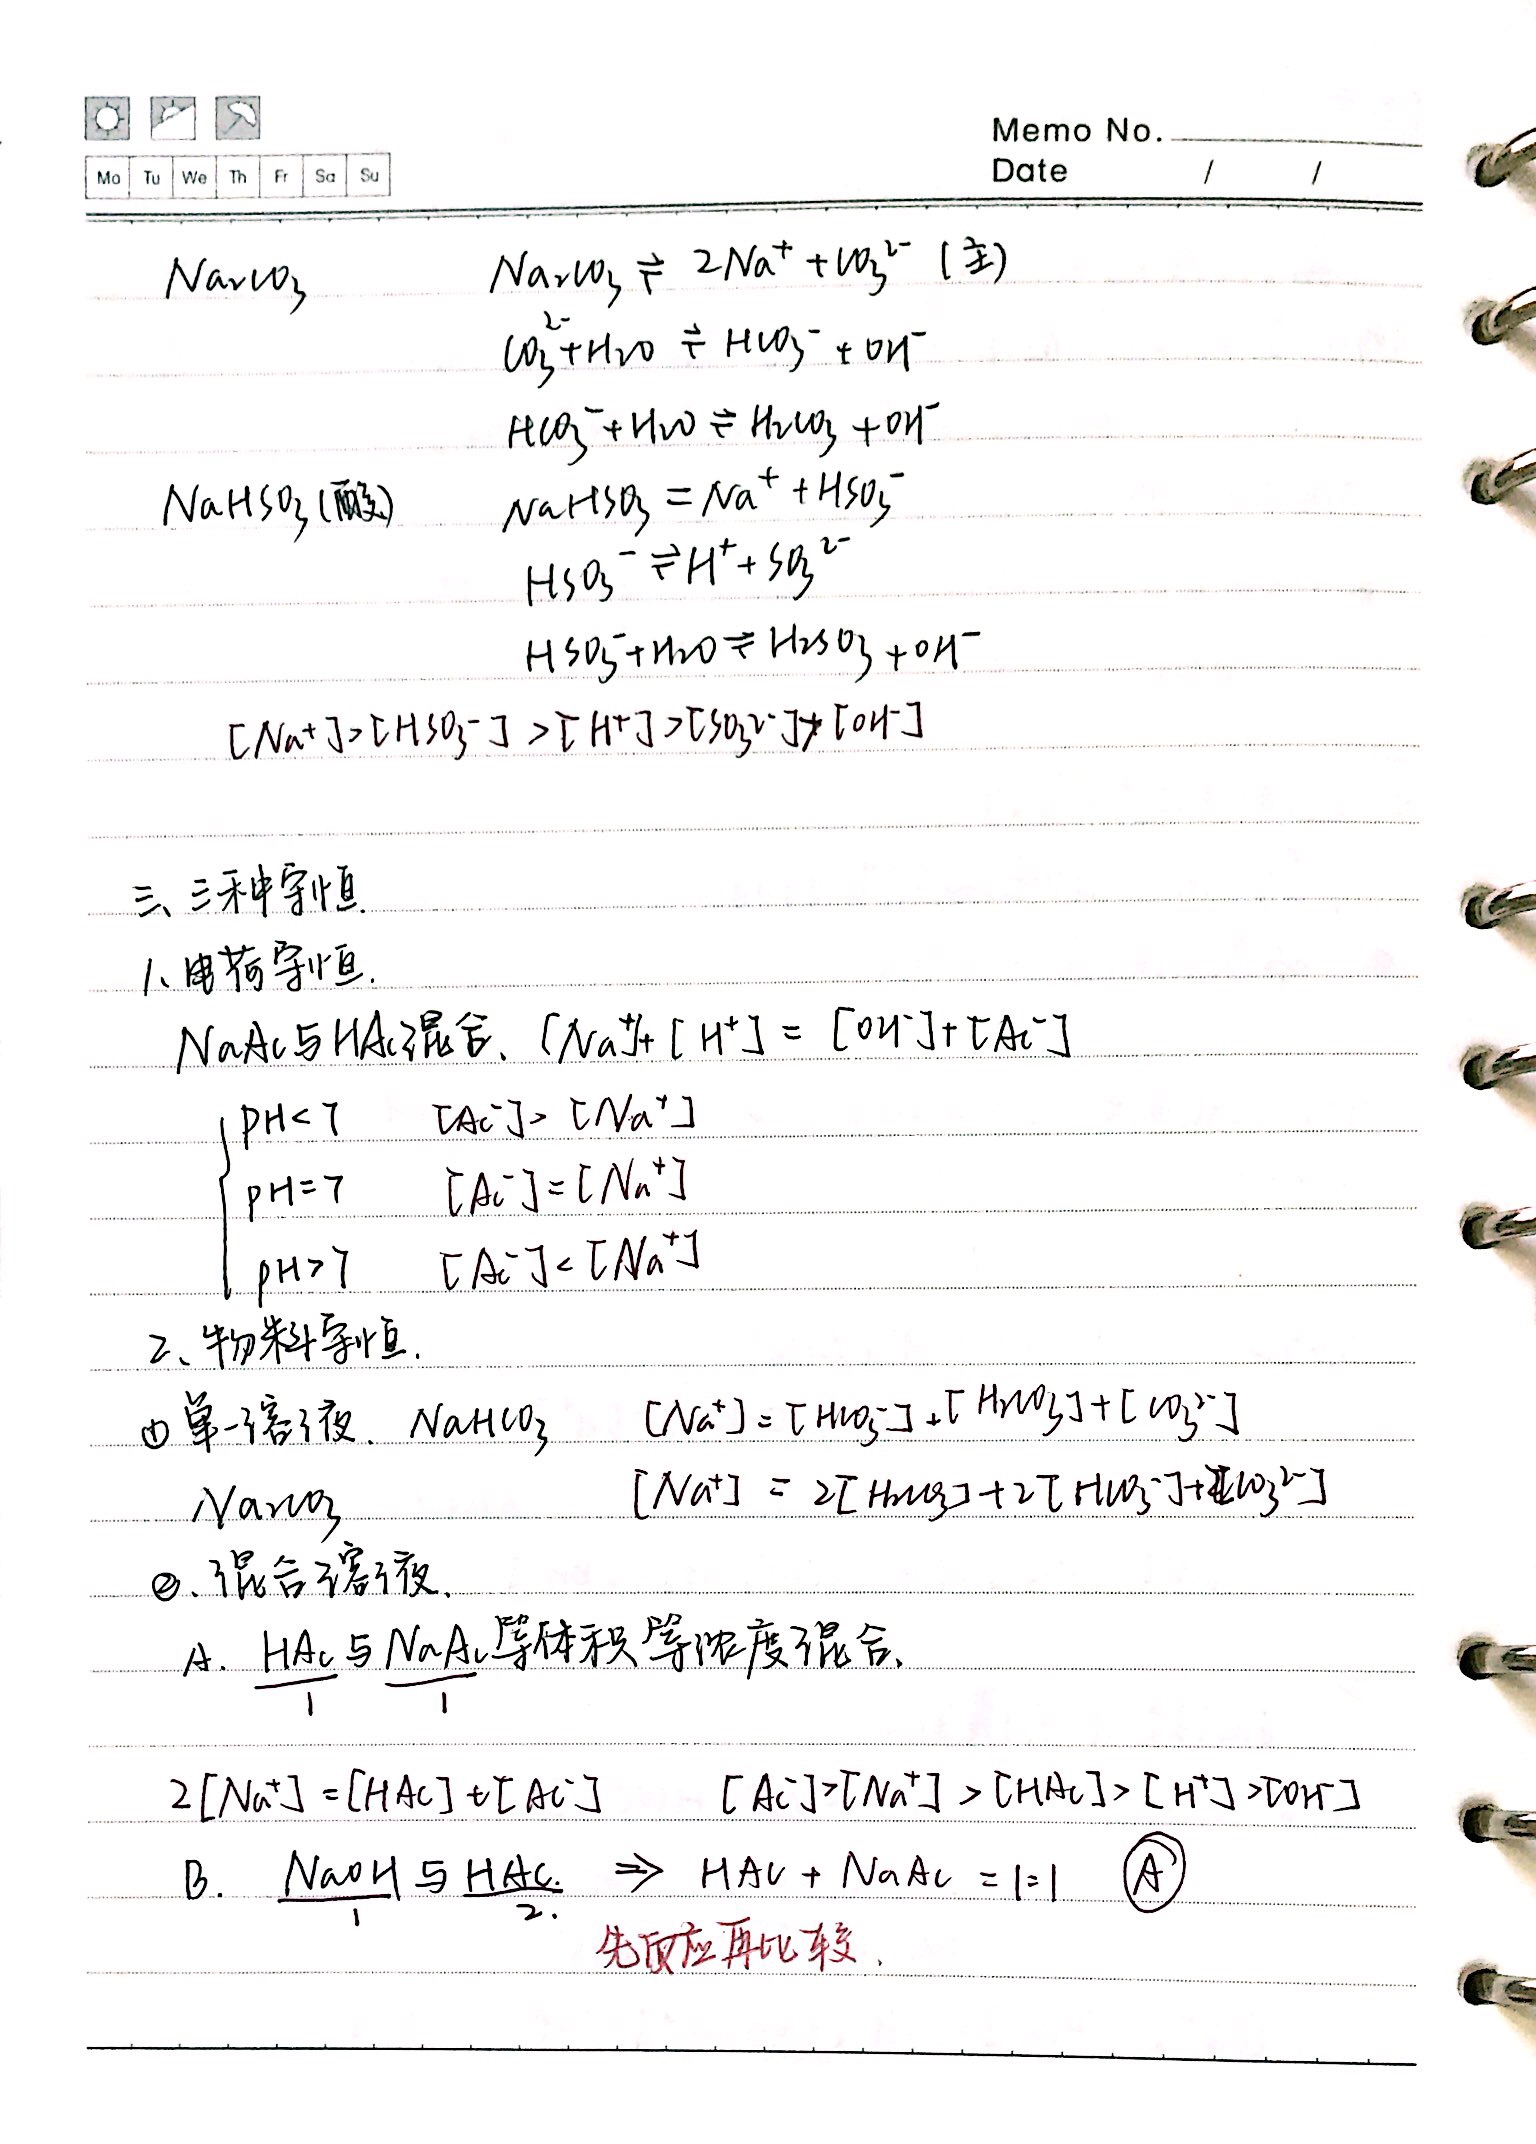 Memo No.
Date / /
Mo Tu We Th Fr Sa Su
Na₂CO₃ Na₂CO₃ ⇌ 2Na⁺ + CO₃²⁻ (主)
CO₃²⁻ + H₂O ⇌ HCO₃⁻ + OH⁻
HCO₃⁻ + H₂O ⇌ H₂CO₃ + OH⁻
NaHSO₃ (酸) NaHSO₃ = Na⁺ + HSO₃⁻
HSO₃⁻ ⇌ H⁺ + SO₃²⁻
HSO₃⁻ + H₂O ⇌ H₂SO₃ + OH⁻
[Na⁺] > [HSO₃⁻] > [H⁺] > [SO₃²⁻] > [OH⁻]
三、三种守恒.
1、电荷守恒.
NaAc与HAc混合、[Na⁺] + [H⁺] = [OH⁻] + [Ac⁻]
pH < 7 [Ac⁻] > [Na⁺]
pH = 7 [Ac⁻] = [Na⁺]
pH > 7 [Ac⁻] < [Na⁺]
2、物料守恒.
① 单一溶液. NaHCO₃ [Na⁺] = [HCO₃⁻] + [H₂CO₃] + [CO₃²⁻]
Na₂CO₃ [Na⁺] = 2[H₂CO₃] + 2[HCO₃⁻] + 2[CO₃²⁻]
②. 混合溶液.
A. HAc与NaAc等体积等浓度混合.
1 1
2[Na⁺] = [HAc] + [Ac⁻] [Ac⁻] > [Na⁺] > [HAc] > [H⁺] > [OH⁻]
B. NaOH与HAc. ⇒ HAc + NaAc = 1:1 Ⓐ
1 2.
先反应再比较.